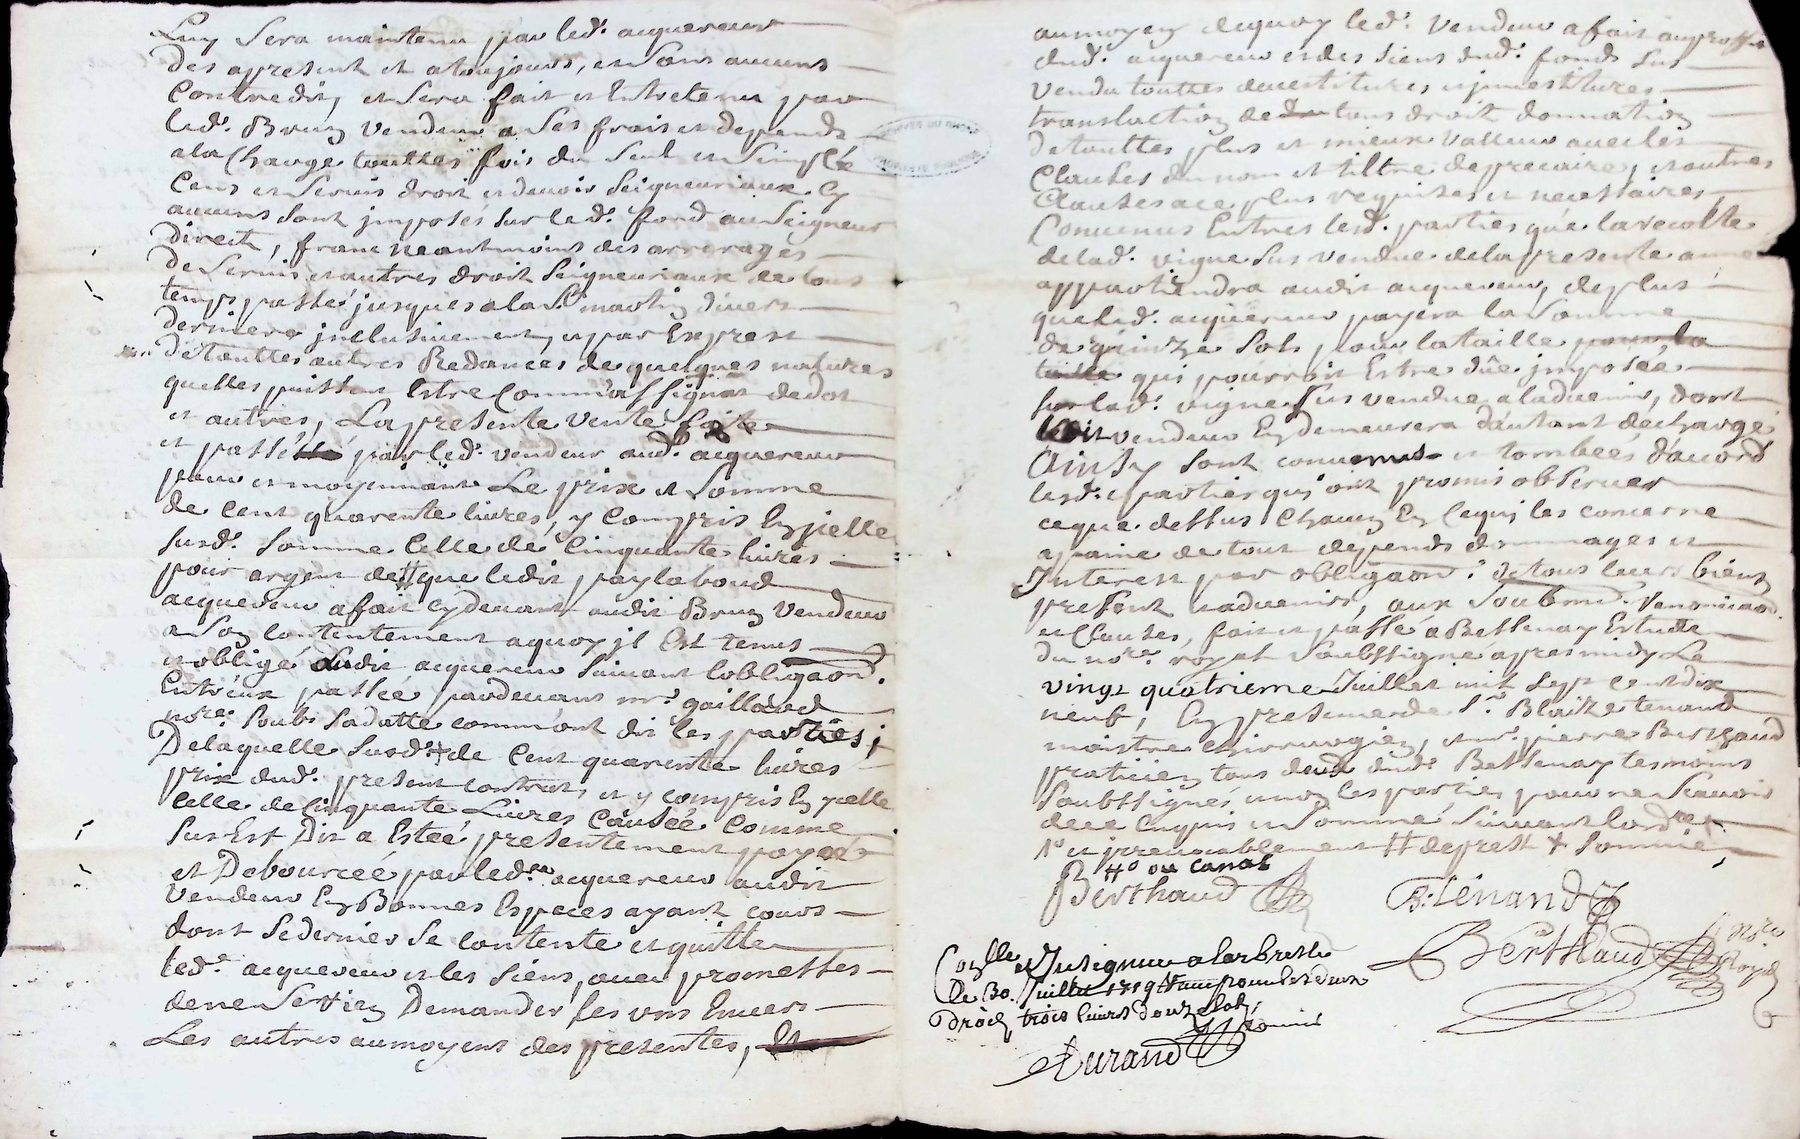 Luy sera maintenu par led. acquereur
des apresent et atousjours, et sans aucuns
Contredit, et sera fait et Entretenu par
led. Brun vendeur a ses frais et depends
ala Charge touttes fois du seul et simple
Cens et servis droit et devoir seigneuriaux sy
aucuns sont imposés sur led. fond au Seigneur
direct, franc neantmoins des arrerages
de servis et autres droit seigneuriaux de tous
temps passé jusques ala St martin d'ivert
derniere inclusivement, et par Exprest
detouttes autres Redances de quelques natures
quelles puissent Estre Comm'assignat dedot
et autres, La presente vente faite
et passée par led. vendeur aud. acquereur
pour et moyennant Le prix et somme
de cent quarente livres, y Compris En jcelle
susd. somme Celle de Cinquante livres
pour argent de que ledit
acquereur afait cydevant audit Brun vendeur
a son Contentement aquoy il Est tenus
et obligé ledit acquereur suivant lobligaon.
Entreux passée pardevant mr. gaillard
nore. soubs sadatte comm'ont dit les parties;
Delaquelle susd. + de Cent quarente livres
prix dud. present contrat, et y compris En jcelle
Celle de Cinquante Livres Causée Comme
sus Est Dit a Estée presentement payée
et Deboursée par led. acquereur audit
vendeur En Bonnes Especes ayant cours
dont sedernier se Contente et quitte
led. acquereur et les siens, avec promesses
de ne se Rien Demander les uns Envers
Les autres aumoyens des presentes,
aumoyen dequoy led. vendeur afait auproffit
dud. acquereur et des siens dud. fonds sus
vendu touttes devestitures et investitures
translation de tous droit donnation
de touttes plus et mieux valleur avec les
Clauses du nom et tiltre de precaire, et autres
Clauses ace plus requises et necessaires,
Convenus Entres lesd. parties que la recolte
delad. vigne sus vendue dela presente année
appartiendra audit acquereur, de plus
que led. acquereur payera la somme
de quinze sols pour la taille pour la
taille qui pourroit Estre dûe imposée
sur lad. vigne sus vendue aladvenir, dont
ledit vendeur En demeurera d'autant décharge
Ainsy sont convenus et tombées d'acord
lesd. parties qui ont promis observer
ceque dessus Chacun En cequi les concerne
apaine de tout depends dommages et
Interest par obligaon. de tous leurs biens
present et advenir, aux soubmi. Renonciaon.
et Clauses, fait et passé a Bessenay Estude
du nore. royal soubssigné apresmidy Le
vingt quatrieme Juillet mil sept cent dix
neuf, En presence de sr. Blaize tenand
maistre chirurgien, et mr. pierre Berthaud
praticien tous deux dud. Bessenay tesmoins
soubssignés et non les parties pour ne scavoir
dece Enquis et sommé suivant lordre
et irrevocablement # deprest + somme
ou canal
Berthaud B: Lénand
Berthaud Nore Royal
Conlle et Insignué alarbresle
Le 30. Juillet 1719
droit, trois livres douze sols,
Durand Commis